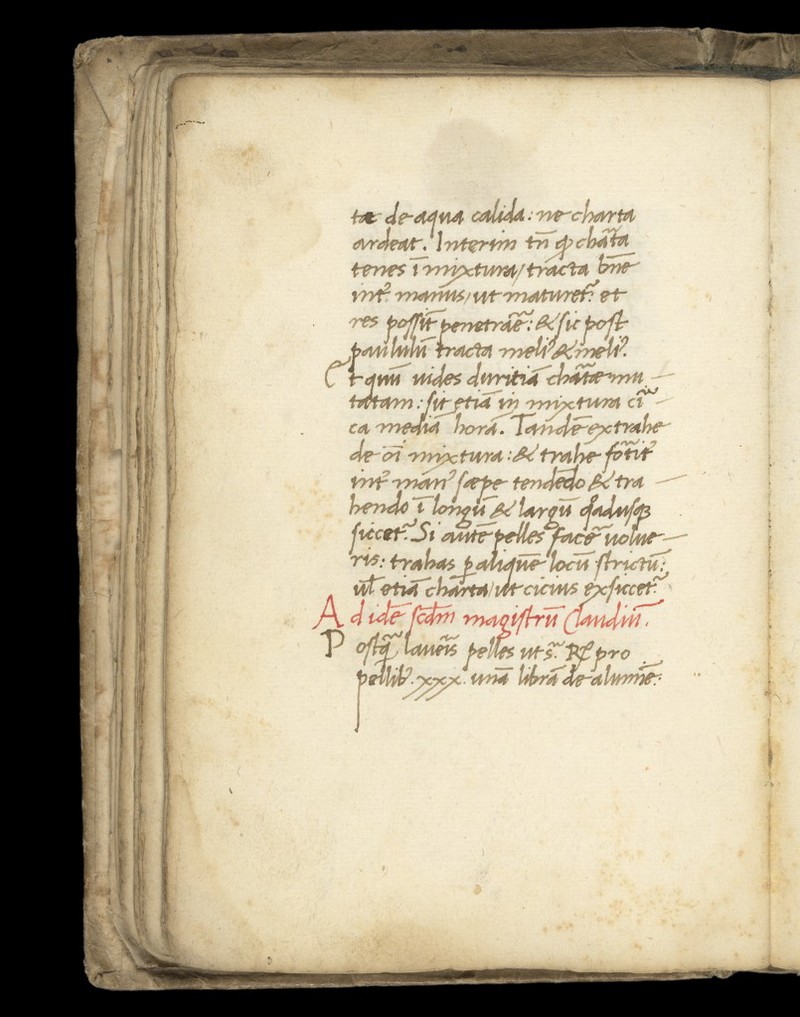 tæ de aqua calida: ne charta
ardeat. Interim tn̄ ꝙ chãta
tenes ĩ mixtura / tracta bn̄e
int᷒ manus / ut maturet᷒. et
res possit penetrãe: & sic post
paululũ tracta meliꝰ & meliꝰ.
Et quũ uides duritiã chãtæ mu
tatam: sit etiã in mixtura cĩ
ca mediã horã. Tandẽ extrahe
de oĩ mixtura: & trahe fõtit᷒
int᷒ manꝰ sæpe tendẽdo & tra
hendo ĩ longũ & largũ qͣdusqꝫ
siccet᷒. Si autẽ pelles facẽ uolue
ris: trahas ꝑ aliquẽ locũ strictũ:
ul̃ etiã charta / ut cicius exsiccet᷒
Ad idẽ scd̃m magistrũ Claudiũ.
Postqͣ̃ lauẽis pelles ut sͣ. ℞ pro
pellibꝰ. xxx. unã librã de alumĩe: